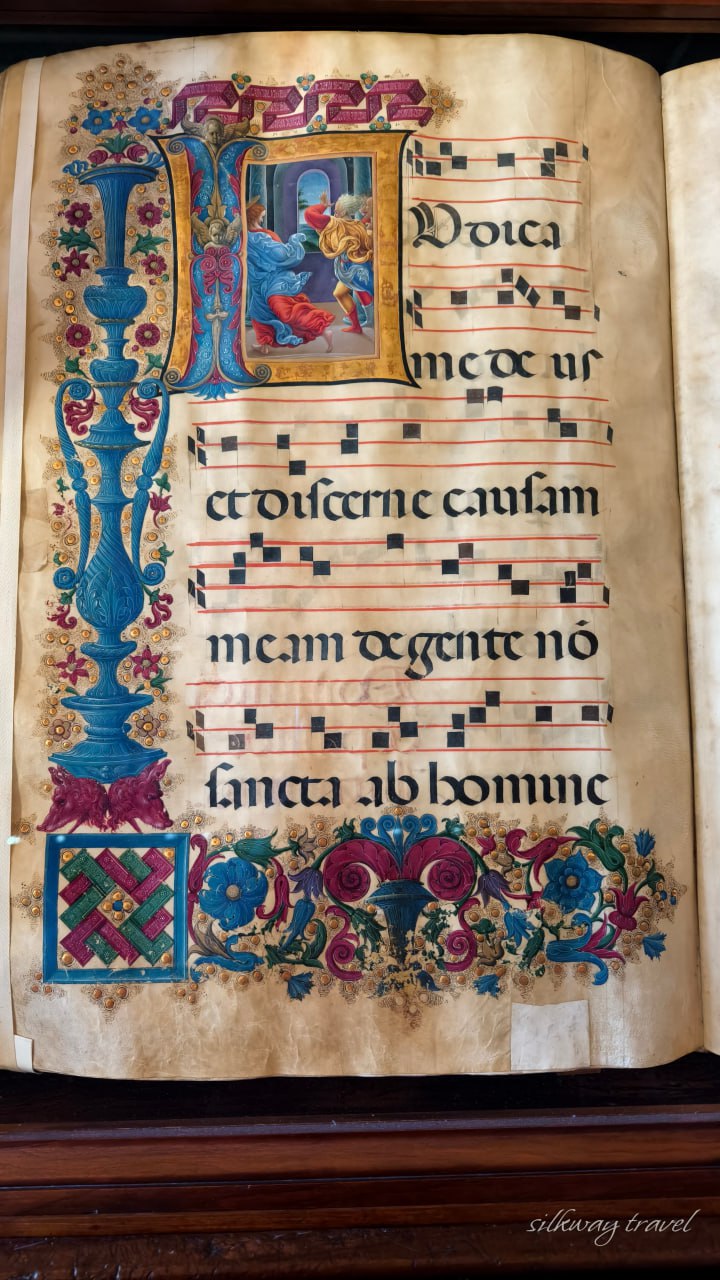 IVdica
me de uſ
et diſcerne cauſam
meam de gente nō
ſancta ab homine
silkway travel